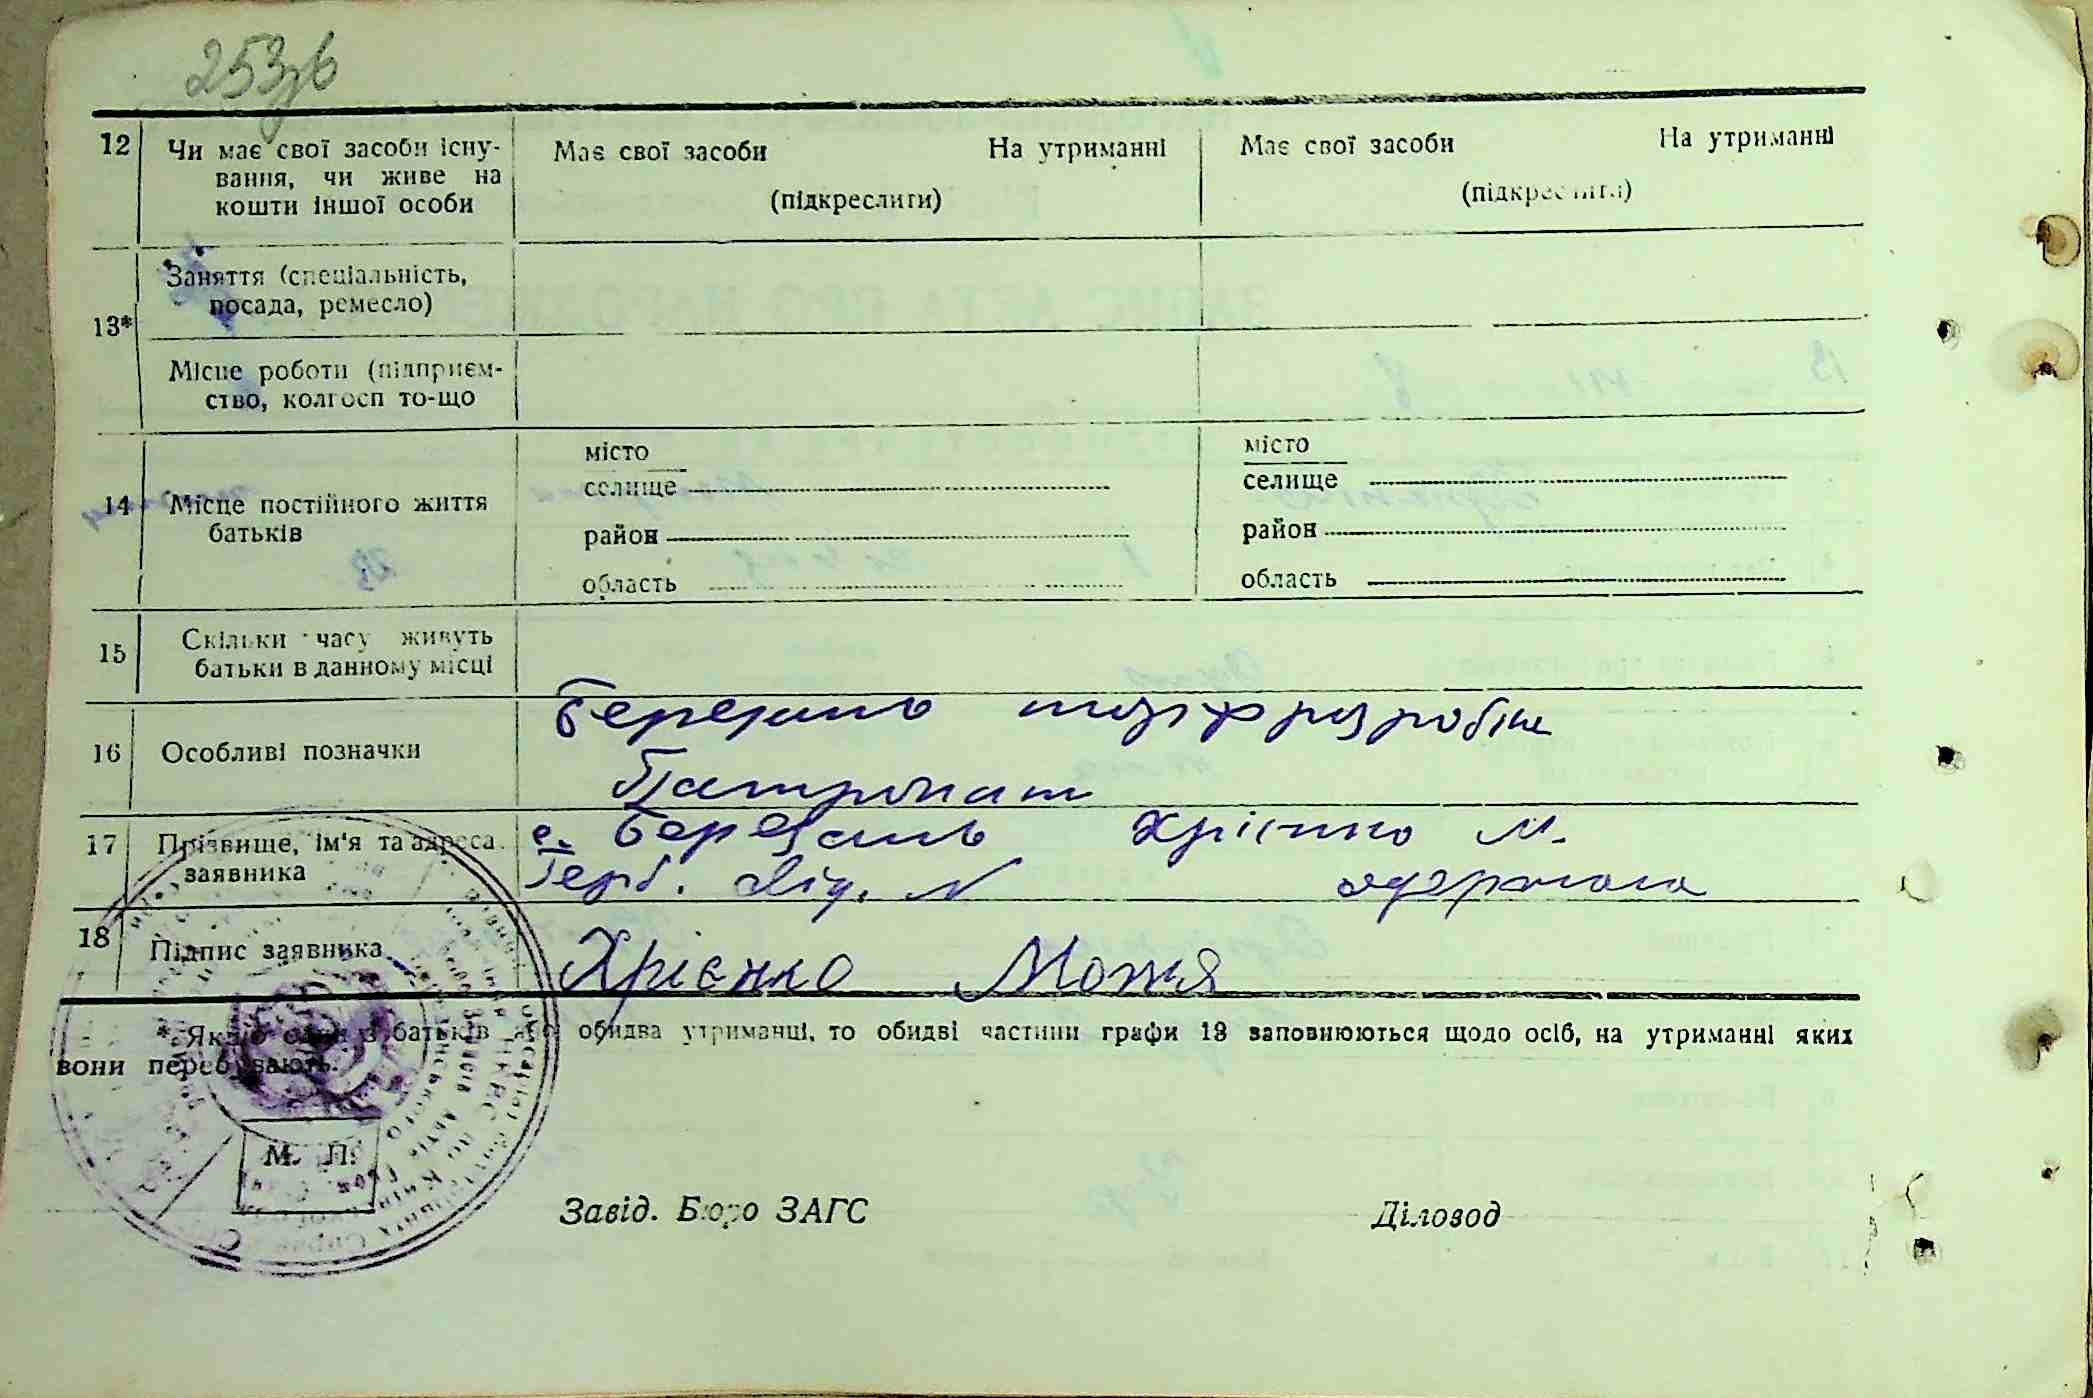 253зв
12 Чи має свої засоби існу-
вання, чи живе на
кошти іншої особи
Має свої засоби На утриманні
(підкреслити)
Має свої засоби На утриманні
(підкреслити)
13* Заняття (спеціальність,
посада, ремесло)
Місце роботи (підприєм-
ство, колгосп то-що
14 Місце постійного життя
батьків
місто
селище
район
область
місто
селище
район
область
15 Скільки часу живуть
батьки в данному місці
16 Особливі позначки
Патронат
17 Прізвище, ім'я та адреса
заявника
с. Березань Хрієнко М.
Герб. Від. N одержала
18 Підпис заявника
Хрієнко Мотя
* Якщо один з батьків або обидва утриманці, то обидві частини графи 13 заповнюються щодо осіб, на утриманні яких
вони перебувають.
М. П.
Завід. Бюро ЗАГС Діловод